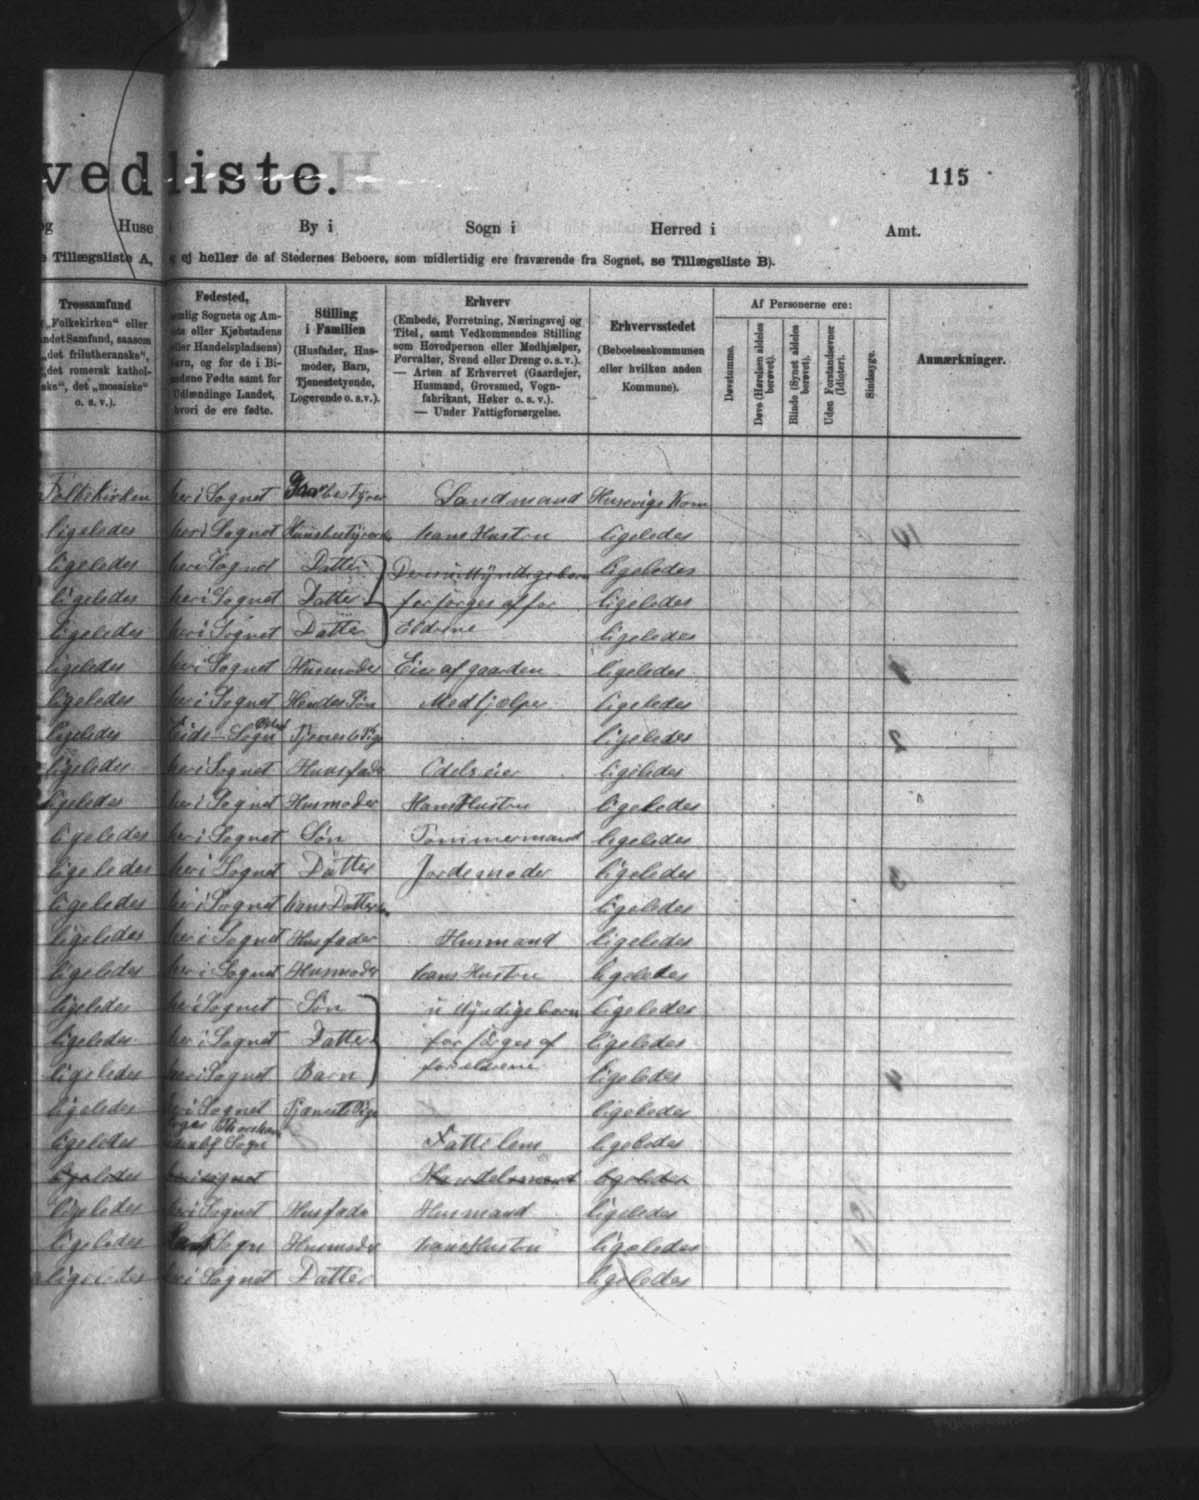 vedliste.
115
og Huse By i Sogn i Herred i Amt.
Tillægsliste A, ej heller de af Stedernes Beboere, som midlertidig ere fraværende fra Sognet, se Tillægsliste B).
Trossamfund
„Folkekirken“ eller
andet Samfund, saasom
„det frilutheranske“,
„det romersk kathol-
ske“, det „mosaiske“
o. s. v.).
Fødested,
nemlig Sognets og Am-
eller Kjøbstadens
eller Handelspladsens)
Navn, og for de i Bi-
landene Fødte samt for
Udlændinge Landet,
hvori de ere fødte.
Stilling
i Familien
(Husfader, Hus-
moder, Barn,
Tjenestetyende,
Logerende o. s. v.).
Erhverv
(Embede, Forretning, Næringsvej og
Titel, samt Vedkommendes Stilling
som Hovedperson eller Medhjælper,
Forvalter, Svend eller Dreng o. s. v.).
— Arten af Erhvervet (Gaardejer,
Husmand, Grovsmed, Vogn-
fabrikant, Høker o. s. v.).
— Under Fattigforsørgelse.
Erhvervsstedet
(Beboelseskommunen
eller hvilken anden
Kommune).
Af Personerne ere:
Døvstumme.
Døve (Hørelsen aldeles berøvet).
Blinde (Synet aldeles berøvet).
Uden Forstandsevner (Idioter).
Sindssyge.
Anmærkninger.
Folkekirken her i Sognet bestyrer Landmand Husevigs Kom
ligeledes her i Sognet Huusbestyrer hans Hustru ligeledes
ligeledes her i Sognet Datter ligeledes
ligeledes her i Sognet Datter forsørges af for ligeledes
ligeledes her i Sognet Datter Eldrene ligeledes
ligeledes her i Sognet Husmoder Eier af gaarden ligeledes
ligeledes her i Sognet Hendes Søn Medhjælper ligeledes
ligeledes Eide Sogn Tjeneste Pige ligeledes
ligeledes her i Sognet Huusfader Odelseier ligeledes
ligeledes her i Sognet Husmoder Hans Hustru ligeledes
ligeledes her i Sognet Søn Tømmermand ligeledes
ligeledes her i Sognet Datter Jordemoder ligeledes
ligeledes her i Sognet hans Datter ligeledes
ligeledes her i Sognet Husfader Husmand ligeledes
ligeledes her i Sognet Husmoder hans Hustru ligeledes
ligeledes her i Sognet Søn u Myndige børn ligeledes
ligeledes her i Sognet Datter forsørges af ligeledes
ligeledes her i Sognet Barn forældrene ligeledes
ligeledes her i Sognet Tjeneste Pige ligeledes
ligeledes Sogn Fattilem ligeledes
ligeledes her i sognet Handelsmand ligeledes
ligeledes her i Sognet Husfader Husmand ligeledes
ligeledes Sogn Husmoder hans Hustru ligeledes
ligeledes her i Sognet Datter ligeledes